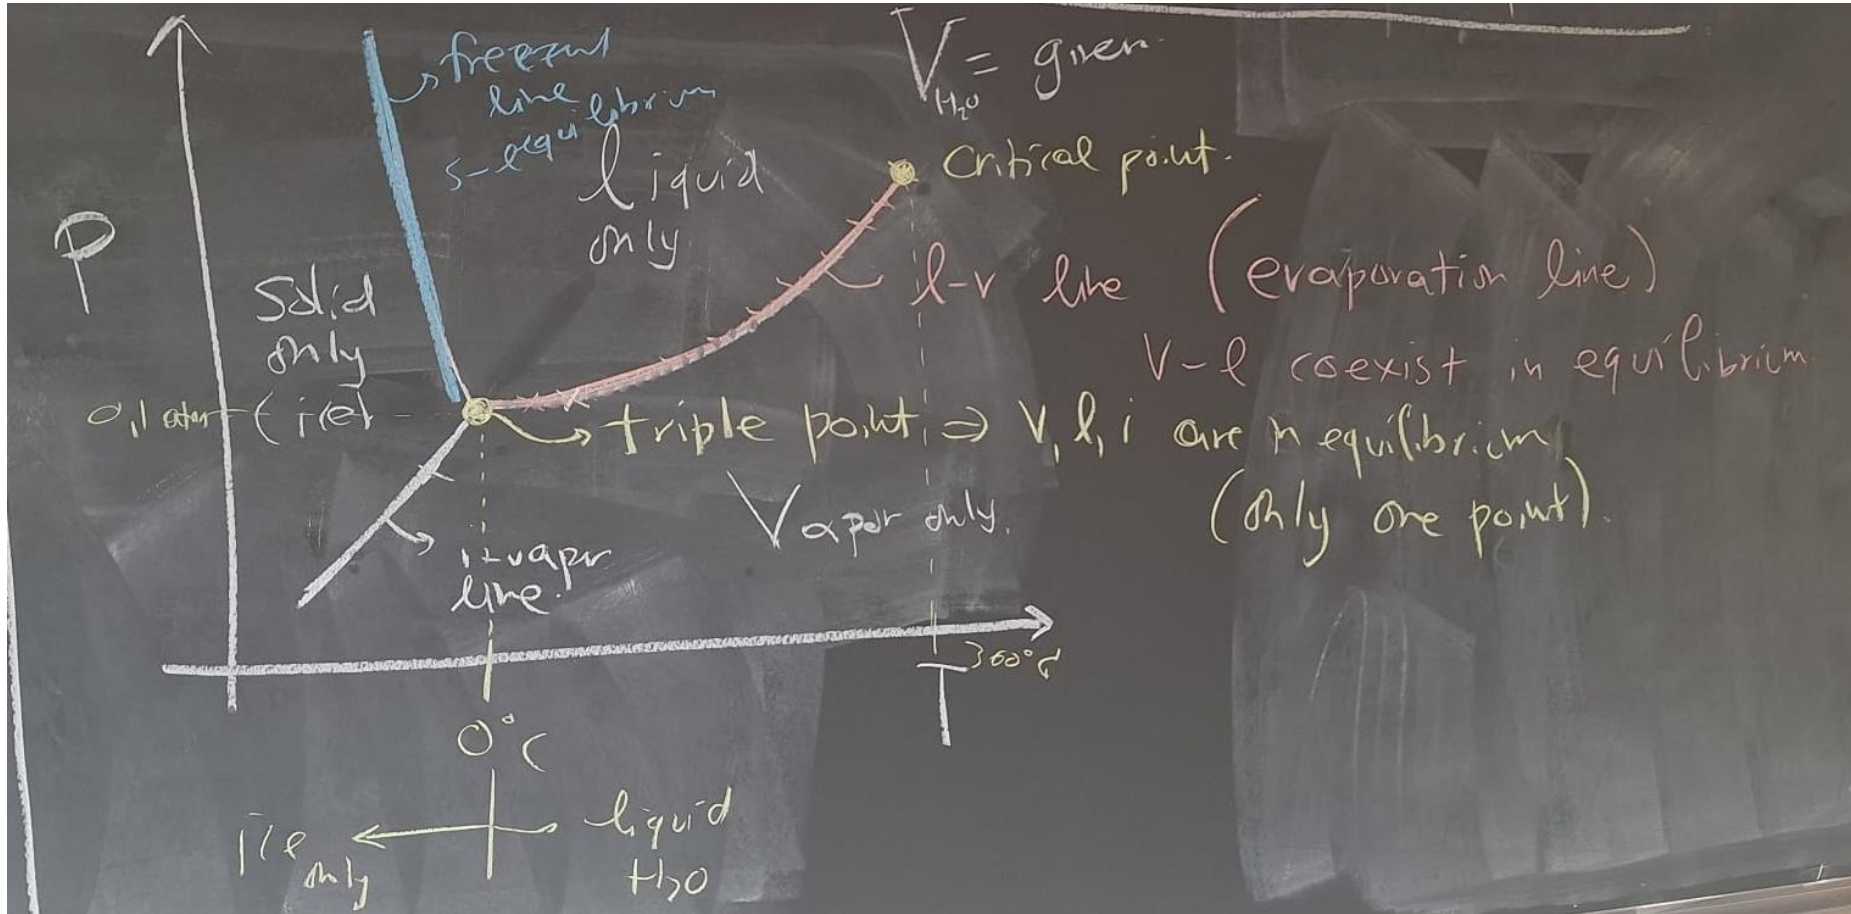 V H₂O = given.
freezing
line
s-l equilibrium
liquid
only
Critical point.
P
l-v line (evaporation line)
V-l coexist in equilibrium
Solid
only
(ice)
0,1 atm
triple point ⇒ V, l, i are in equilibrium
(only one point).
Vapor only.
i-vapor
line.
300°C
T
0°C
ice
only
liquid
H₂O